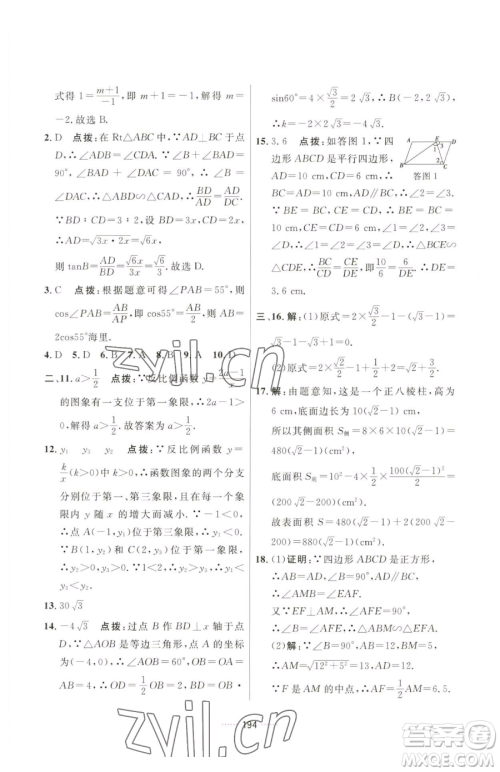 式得1=m+1/-1，即m+1=-1，解得m=
-2.故选B.
2. D 点拨：在Rt△ABC中，∵AD⊥BC于点
D，∴∠ADB=∠CDA.∵∠B+∠BAD=
90°，∠BAD+∠DAC=90°，∴∠B=
∠DAC，∴△ABD∽△CAD，∴BD/AD=AD/DC.
∵BD:CD=3:2，设BD=3x，CD=2x，
∴AD=√3x·2x=√6x，
则tanB=AD/BD=√6x/3x=√6/3.故选D.
3. C 点拨：根据题意可得∠PAB=55°，则
cos∠PAB=AB/AP，即cos55°=AB/2，∴AB=
2cos55°海里.
4. D 5. D 6. B 7. A 8. B 9. A 10. D
二、11. a>1/2 点拨：∵反比例函数y=2a-1/x
的图象有一支位于第一象限，∴2a-1>
0，解得a>1/2.故答案为a>1/2.
12. y₁ y₃ 点拨：∵反比例函数y=
k/x(k>0)中，∴函数图象的两个分支
分别位于第一、第三象限，且在每一象
限内y随x的增大而减小.∵-1<
0，∴点A(-1，y₁)位于第三象限.
∵B(1，y₂)和C(2，y₃)位于第一象
限，∴y₂>y₃，∴y₁<y₃<y₂.
13. 30√3
14. -4√3 点拨：过点B作BD⊥x轴于点
D，∵△AOB是等边三角形，点A的坐标
为(-4，0)，∴∠AOB=60°，OB=OA=
AB=4，∴OD=1/2OB=2，BD=OB·
sin60°=4×√3/2=2√3，∴B(-2，2√3)，
∴k=-2×2√3=-4√3.
15. 3.6 点拨：如答图1，∵四
边形ABCD是平行四边形，
AD=10 cm，CD=6 cm，∴
BC=AD=10 cm，AD∥BC，∴∠2=∠3.
∵BE=BC，CE=CD，∴BE=BC=
10 cm，CE=CD=6 cm，∠1=∠2，∠3=
∠D，∴∠1=∠2=∠3=∠D，∴△BCE∽
△CDE，∴BC/CD=CE/DE，∴10/6=6/DE，∴DE=
3.6 cm.
A E D
3
1
2
B C
答图1
三、16. 解：(1)原式=2×√3/2-1-(√3-1)=
√3-1-√3+1=0.
(2)原式=√3-2×√2/2-1+√2=√3-1.
17. 解：由题意可知，这是一个正八棱柱，高为
6 cm，底面边长为10(√2-1)cm，
所以其侧面积S侧=8×6×10(√2-1)=
480(√2-1)(cm²)，
底面积S底=10²-4×1/2×100(√2-1)²/2=
(200√2-200)(cm²).
故表面积S=480(√2-1)+2(200√2-
200)=880(√2-1)(cm²).
18. (1)证明：∵四边形ABCD是正方形，
∴AB=AD，∠B=90°，AD∥BC，
∴∠AMB=∠EAF.
又∵EF⊥AM，∴∠AFE=90°，
∴∠B=∠AFE，∴△ABM∽△EFA.
(2)解：∵∠B=90°，AB=12，BM=5，
∴AM=√12²+5²=13，AD=12.
∵F是AM的中点，∴AF=1/2AM=6.5.
194
zvil.cn
zvil.cn
答案圈
MXQE.COM